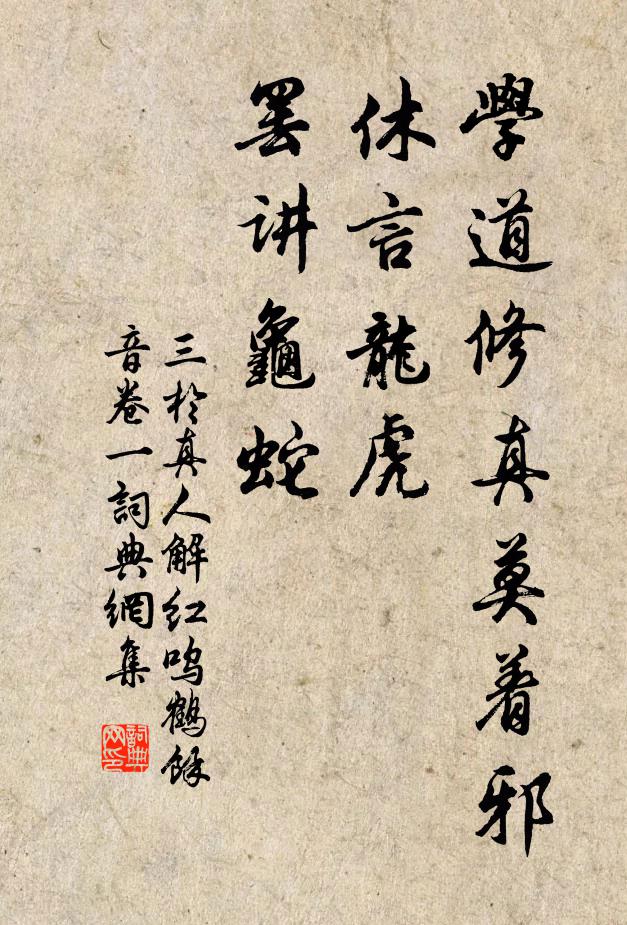 學道修真莫着邪
休言龍虎
罢讲龜蛇
三於真人解红鸣鶴餘
音卷一詞典網集
詞典网印